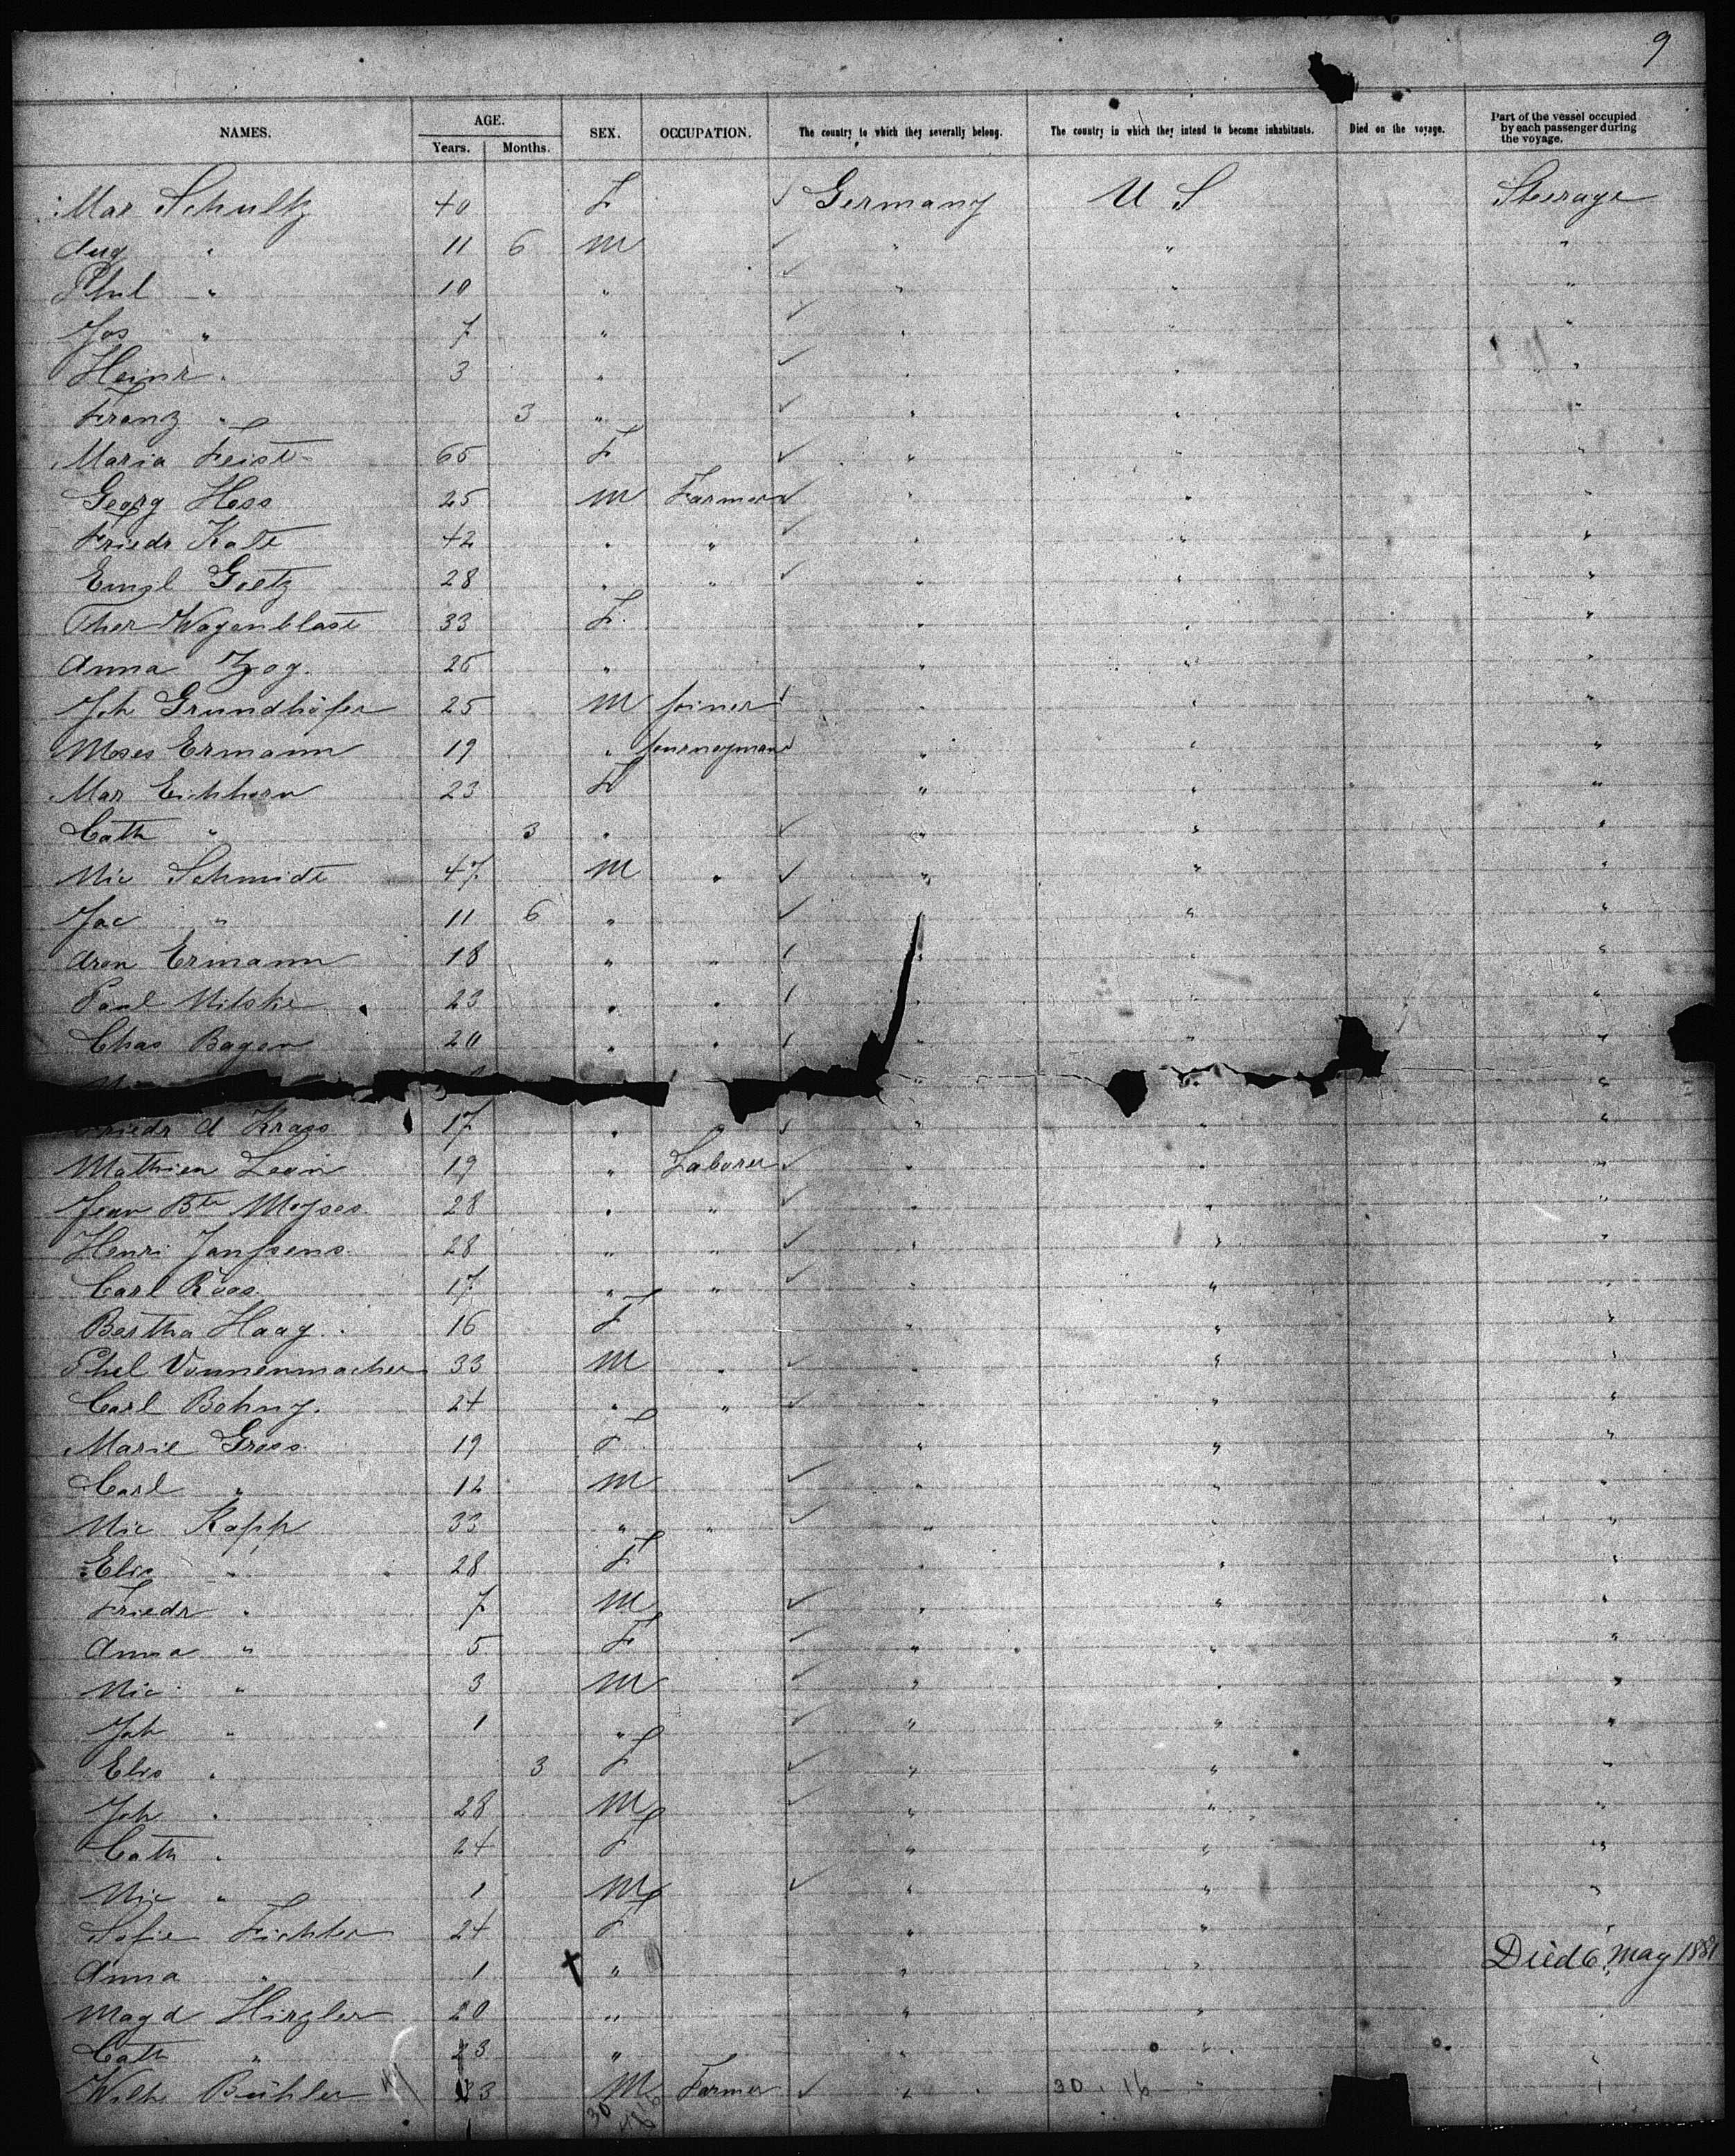 9
NAMES. AGE. SEX. OCCUPATION. The country to which they severally belong. The country in which they intend to become inhabitants. Died on the voyage. Part of the vessel occupied by each passenger during the voyage.
Years. Months.
Mar Schultz 40 F Germany U S Steerage
Aug " 11 6 M " " "
Phil " 10 " " " "
Jos " 7 " " " "
Heinr " 3 " " " "
Franz " 3 " " " "
Maria Feist 65 F " " "
Georg Hess 25 M Farmer " " "
Friedr Kate 42 " " " " "
Engl Goetz 28 " " " " "
Ther Wagenblast 33 F " " "
Anna 25 " " " "
Joh Grundhöfer 25 M joiner " " "
Moses Ermann 19 " journeyman " " "
Mar Eichhorn 23 F " " "
Cath " 3 " " " "
Nic Schmidt 47 M " " " "
Jac " 11 6 " " " "
Aron Ermann 18 " " " " "
Paul Milske 23 " " " " "
Chas Bagen 20 " " " " "
Friedr A Krass 17 " " " "
Mathieu Leon 19 " Laborer " " "
Jean Bte Moyses 28 " " " " "
Henri Janssens 28 " " " " "
Carl Roos 17 " " " " "
Bertha Haag 16 F " " "
Phil Vonnenmacher 33 M " " " "
Carl Behny 24 " " " " "
Marie Gross 19 F " " "
Carl " 12 M " " "
Nic Kapp 33 " " " " "
Elis " 28 F " " "
Friedr " 7 M " " "
Anna " 5 F " " "
Nic " 3 M " " "
Joh " 1 " " " "
Elis " 3 F " " "
Joh " 28 M " " "
Cath " 24 F " " "
Nic " 1 M " " "
Sofie Fichter 24 F " " "
Anna " 1 " " " Died 6 May 1881
Magd Hirgler 20 " " " "
Cath " 23 " " " "
Wilh Bühler 23 M Farmer " 30 . 16 " "
30